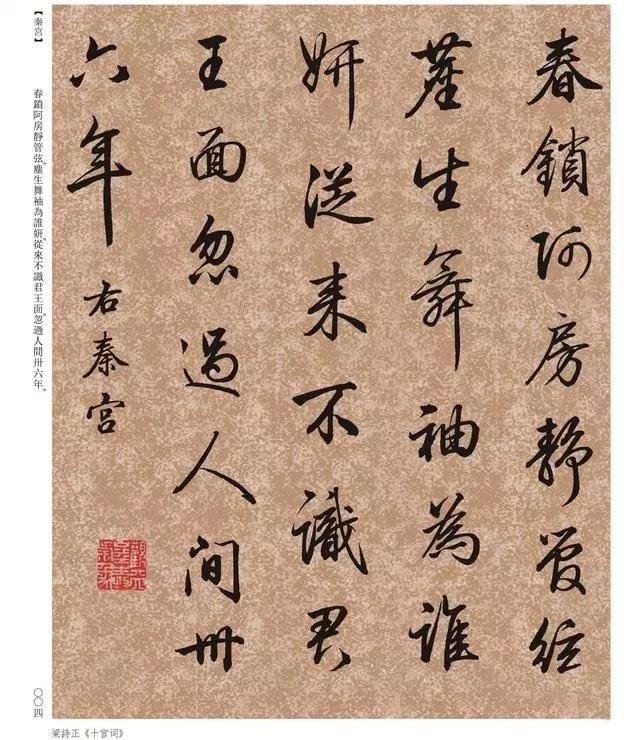 春鎖阿房靜管絃
塵生舞袖為誰
妍從來不識君
王面忽過人間卅
六年 右秦宮
【秦宮】 春鎖阿房靜管弦。塵生舞袖為誰妍。從來不識君王面。忽過人間卅六年。
〇〇四
梁詩正《十宫词》